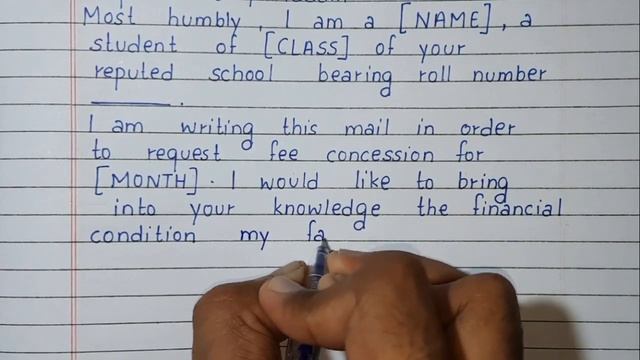 Most humbly, I am a [NAME], a
student of [CLASS] of your
reputed school bearing roll number
________.
I am writing this mail in order
to request fee concession for
[MONTH]. I would like to bring
into your knowledge the financial
condition my fa